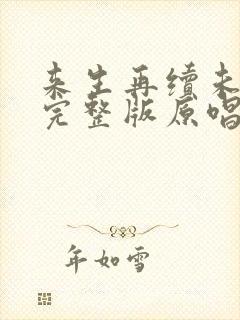 来生再续未
完整版原唱
年如雪